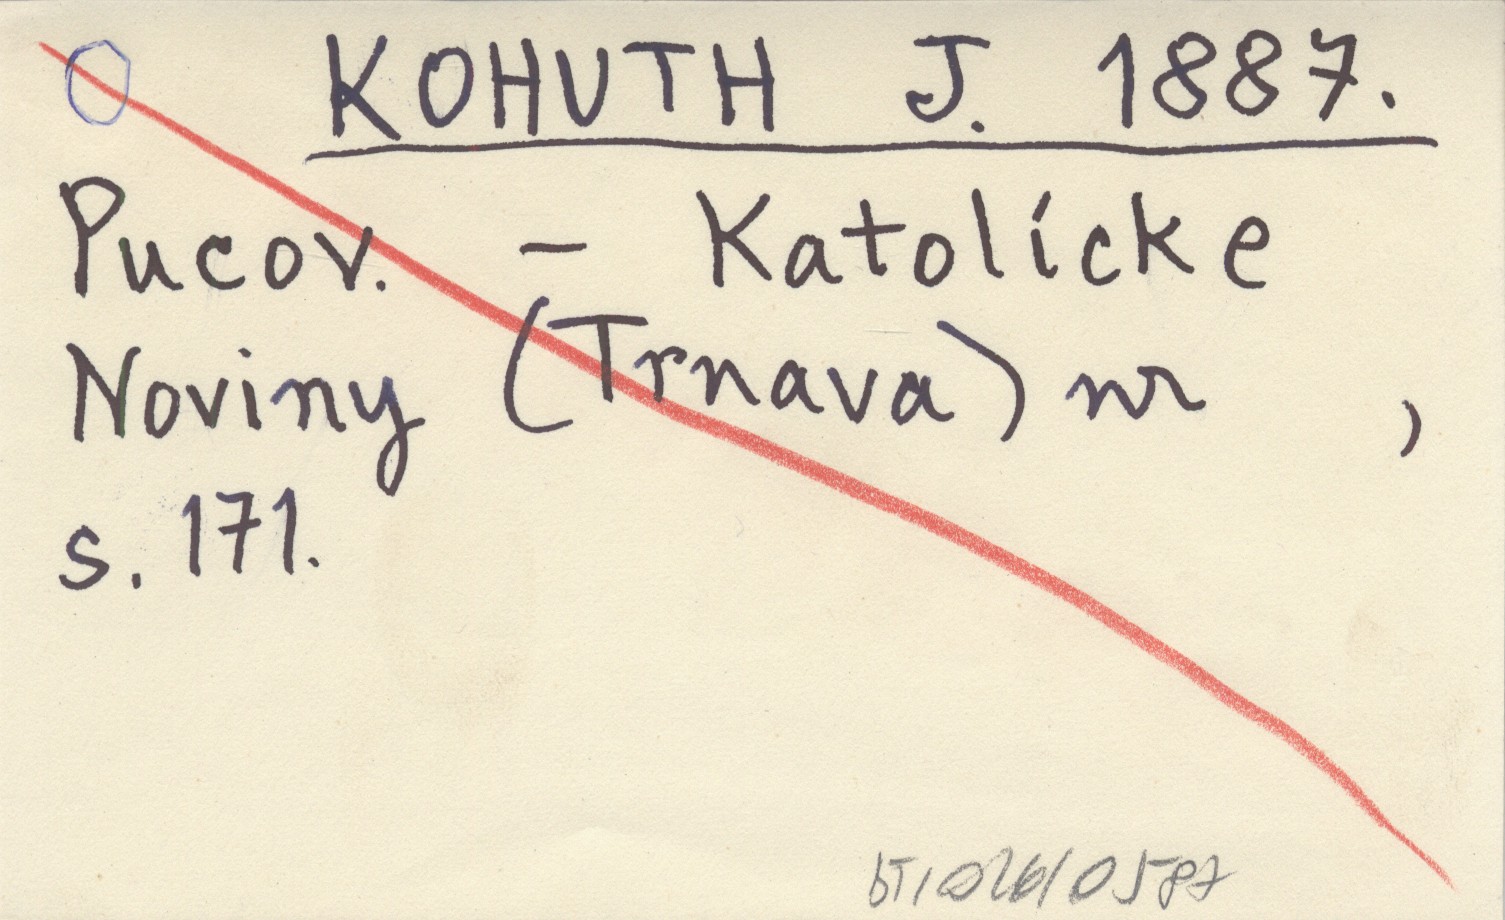 KOHUTH J. 1887.
Pucov. - Katolícke
Noviny (Trnava) nr ,
s. 171.
BT/026/0587